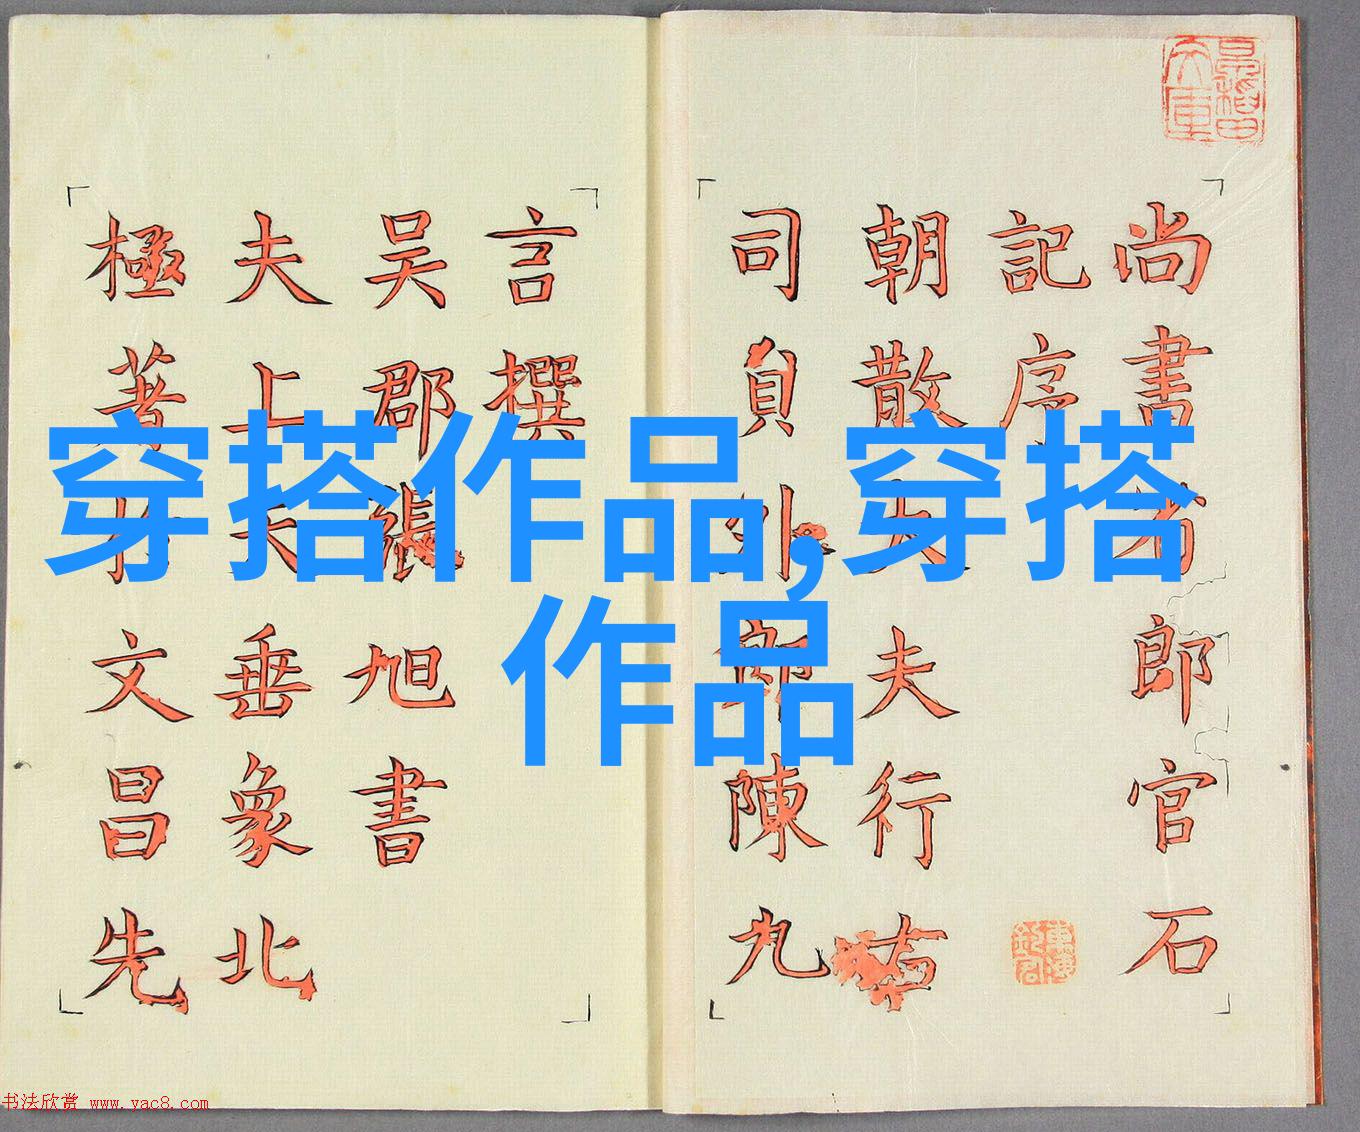 穿搭作品,穿搭
作品
尚書省郎官石
記序
朝散大夫行右
司員外郎陳九
言撰
吴郡張旭書
夫上天垂象北
極著文昌先
书法欣赏 www.yac8.com